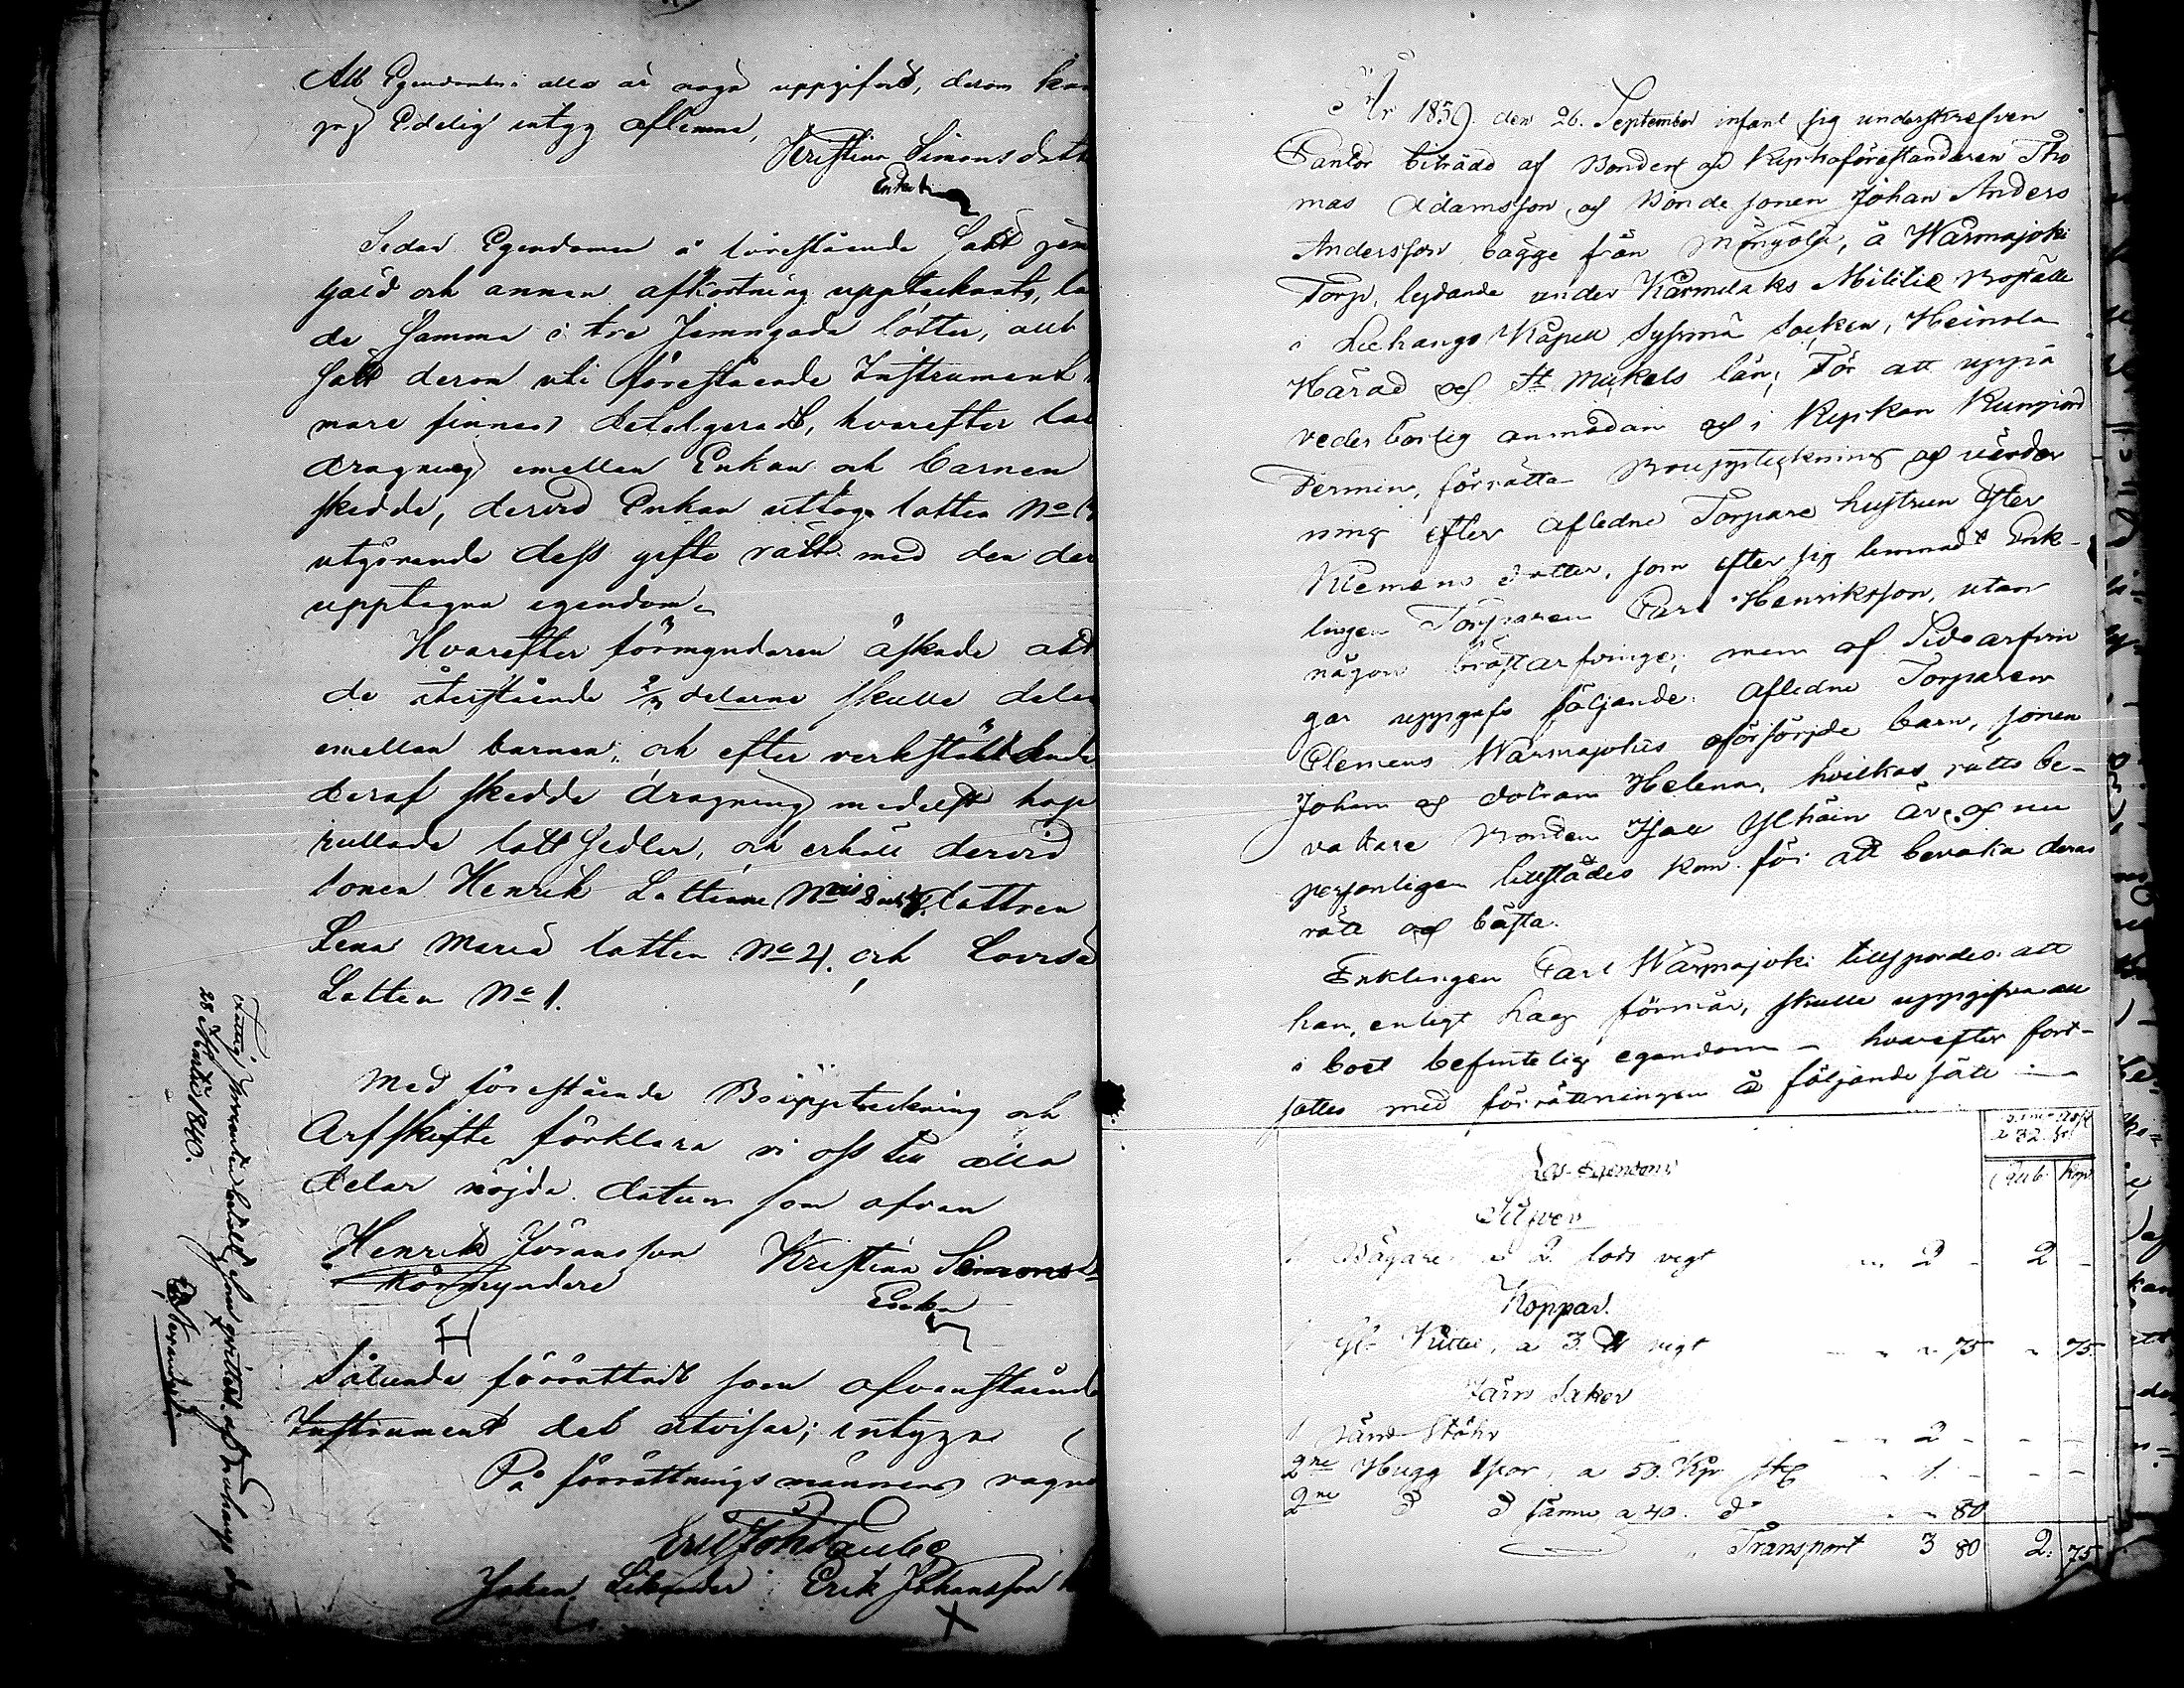 Att Egendomen i allo är noga uppgifvet, derom kan
jag Edelig intyg aflemna,
Kristina Simonsdotte
Enka
Sedan Egendomen å förestående Satt
Gäld och annan afkortning upptecknats,
de samma i tre Jemngoda lotter, allt
Satt derom uti förestående Instrument
mare finnes detaljeradt, hvarefter
dragning emellan Enkan och barnen
skedde, dervid Enkan uttog lotten No
utgörande dess gifto rätt med den der
upptagna egendom.
Hvarefter förmyndaren äskade att
de återstående 2/3 delarne skulle
emellan barnen, och efter verkställande
deraf skedde dragning medelst hop
rullade lott Sedlar, och erhöll dervid
sonen Henrik Lotterne dottren
Lena Maria lotten No 2, och Lovisa
Lotten No 1.
Med förestående Bouppteckning och
Arfskifte förklara vi oss till alla
delar nöjda. datum som ofvan
Henrik Göransson Kristina Simons
Förmyndare Enka
Sålunda förrättadt som ofvanstående
Instrument det utvisar; intyga
På förrättningsmännens vagnar
Erik Joh Taube
Johan Erik Johansson
Fattig Procenten betald, som qvitteras af Luhanga den
28 Martii 1840.
År 1839. den 26. September infant sig underskrefven
Cantor biträdd af Bonden och Kyrkoföreståndaren Tho
mas Adamsson, och Bonde sonen Johan Anders
Andersson bägge från, å Wärmajoki
Torp, lydande under Kärmelaks Militie Boställe
i Luhango Kapell Sysmä Socken, Heinola
Härad och St Mickels län; För att uppå
vederbörlig anmodan och i Kyrkan Kungjord
Termin, förrätta Bouppteckning och värder
ning efter aflidne Torpare hustrun Ester
Klemens dotter, som efter sig lemnat Enk-
lingen Torparen Carl Henriksson, utan
någon bröstarfvinge; men af Sidoarfvin
gar uppgafs följande: Aflidne Torparen
Clemens Wärmajokis oförsörjde barn, sonen
Johan och dottren Helena, hvilkas rätts be-
vakare Bonden Isac Ylhäin är och nu
personligen tillstädes kom för att bevaka deras
rätt och bästa.
Enklingen Carl Wärmajoki tillspordes att
han, enligt Lag förmår, skulle uppgifva all
i boet befintelig egendom – hvarefter fort-
sattes med förrättningen å följande sätt :
Lös Egendom Rub. Kop
Silfver
1 Bägare à 2 lods vigt 2 – 2 –
Koppar.
1 st. Kittel, a 3 ℔ vigt 75 75.
Järn Saker
1 Stöhr 2 – – –
2ne Hugg Yxor, a 50. Kp. st 1. – – –
2ne d° d° sämre a 40. d° 80
Transport 3 80 2. 75